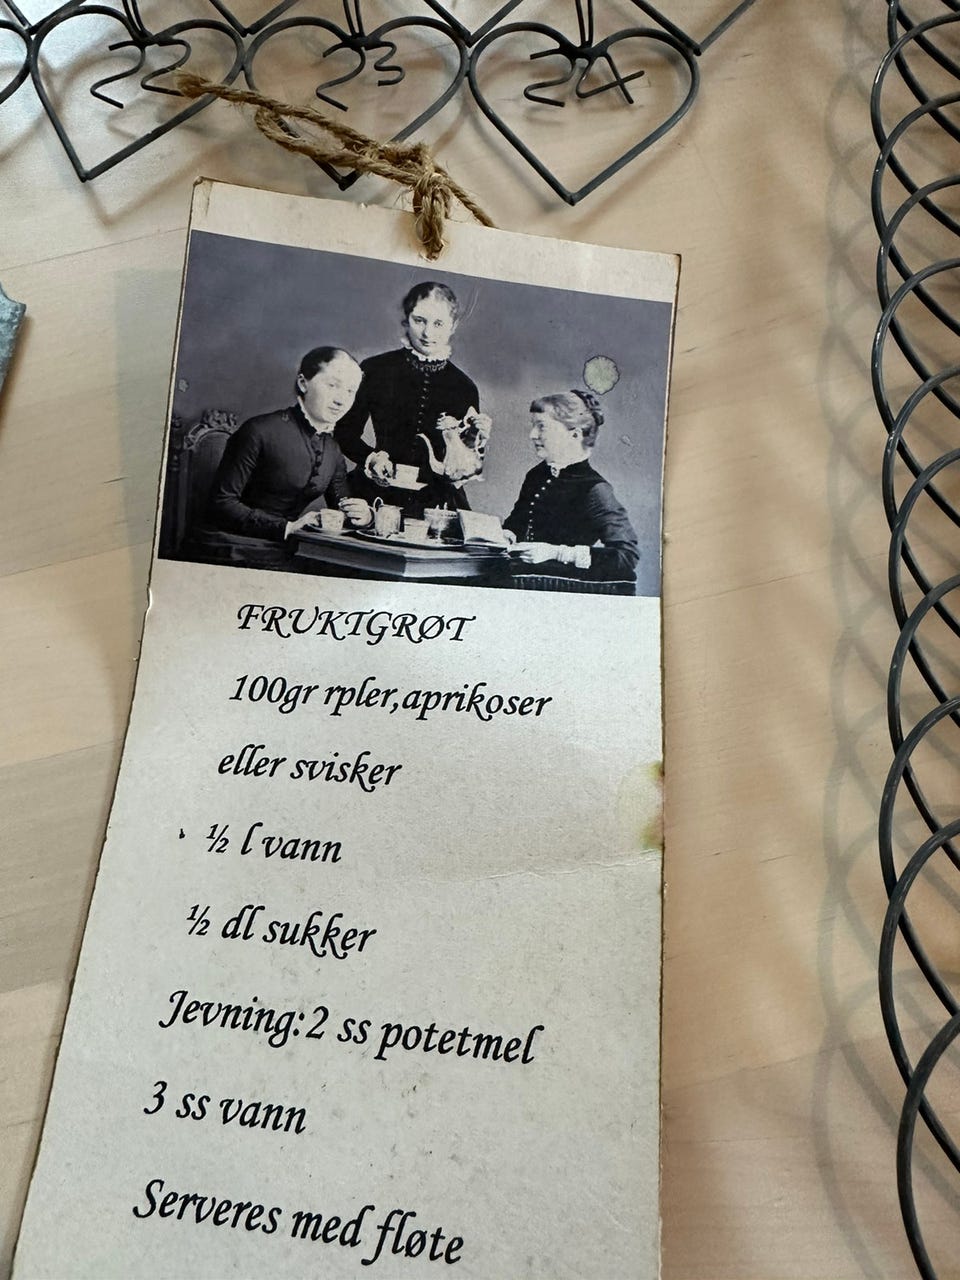 22
23
24
FRUKTGRØT
100gr rpler,aprikoser
eller svisker
½ l vann
½ dl sukker
Jevning:2 ss potetmel
3 ss vann
Serveres med fløte